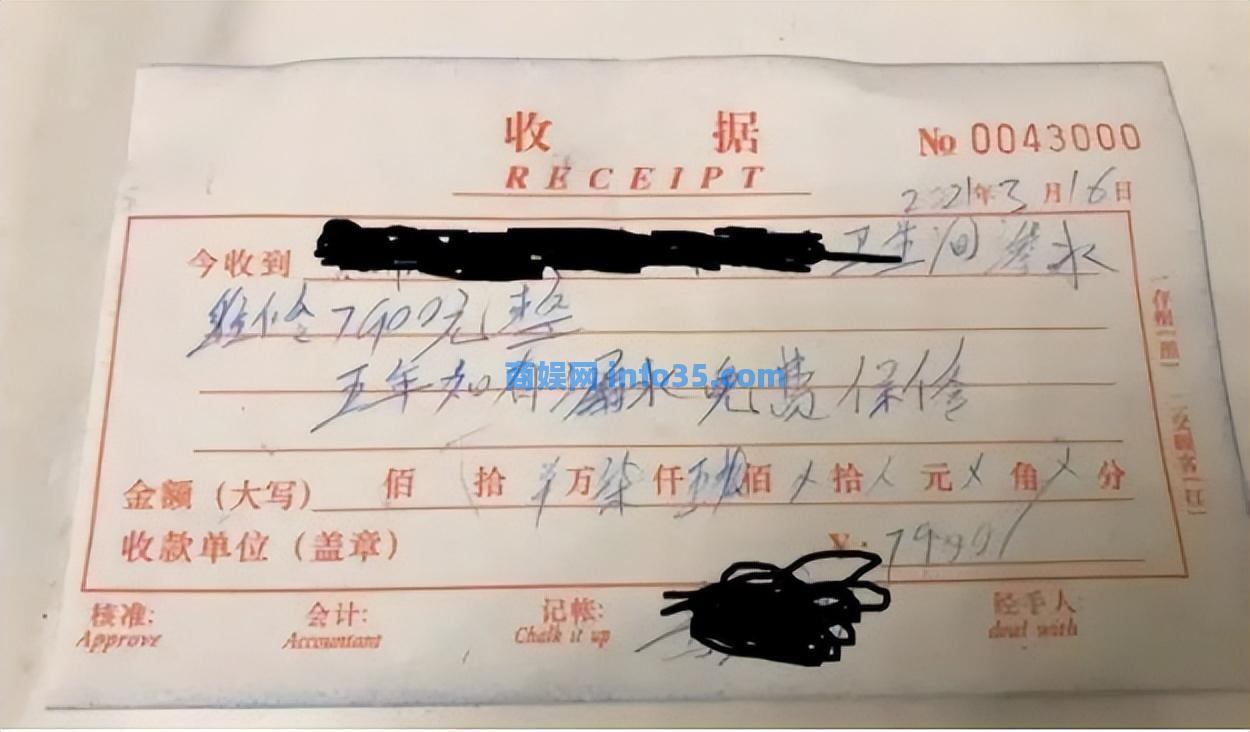 收 据
RECEIPT
No 0043000
2021年3月16日
今收到 卫生间渗水
维修7900元整
五年如有漏水免费保修
商娱网 info35.com
金额(大写) 佰 拾 万柒仟 佰 拾 元 角 分
收款单位(盖章) ¥: 7900
核准: 会计: 记帐: 经手人
Approve Accountant Chalk it up deal with